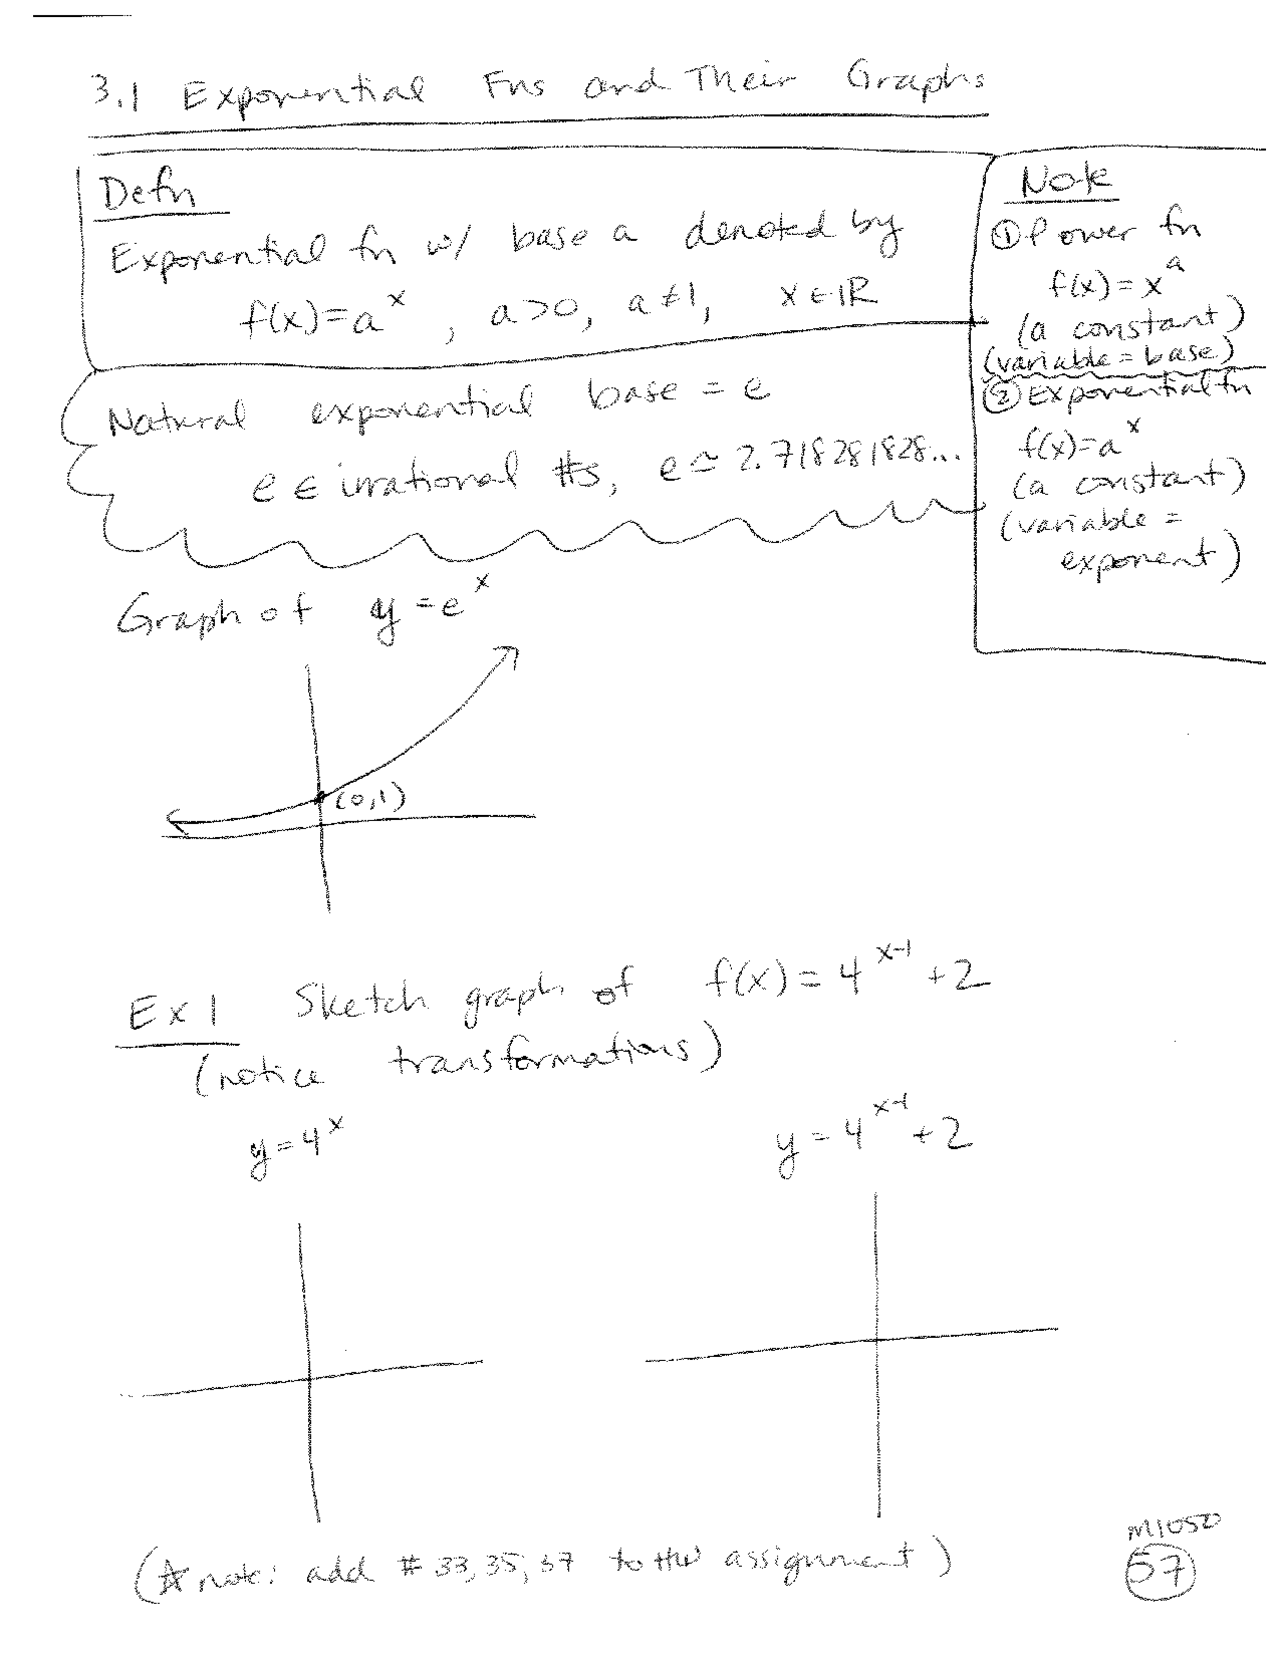 3.1 Exponential Fns and Their Graphs
Defn
Exponential fn w/ base a denoted by
f(x)=a^x, a>0, a≠1, x∈ℝ
Note
① Power fn
f(x)=x^a
(a constant)
(variable = base)
② Exponential fn
f(x)=a^x
(a constant)
(variable =
exponent)
Natural exponential base = e
e ∈ irrational #s, e ≃ 2.718281828...
Graph of y=e^x
(0,1)
Ex 1 Sketch graph of f(x)=4^{x-1}+2
(notice transformations)
y=4^x
y=4^{x-1}+2
(☆ note: add # 33, 35, 37 to the assignment)
M1050
57